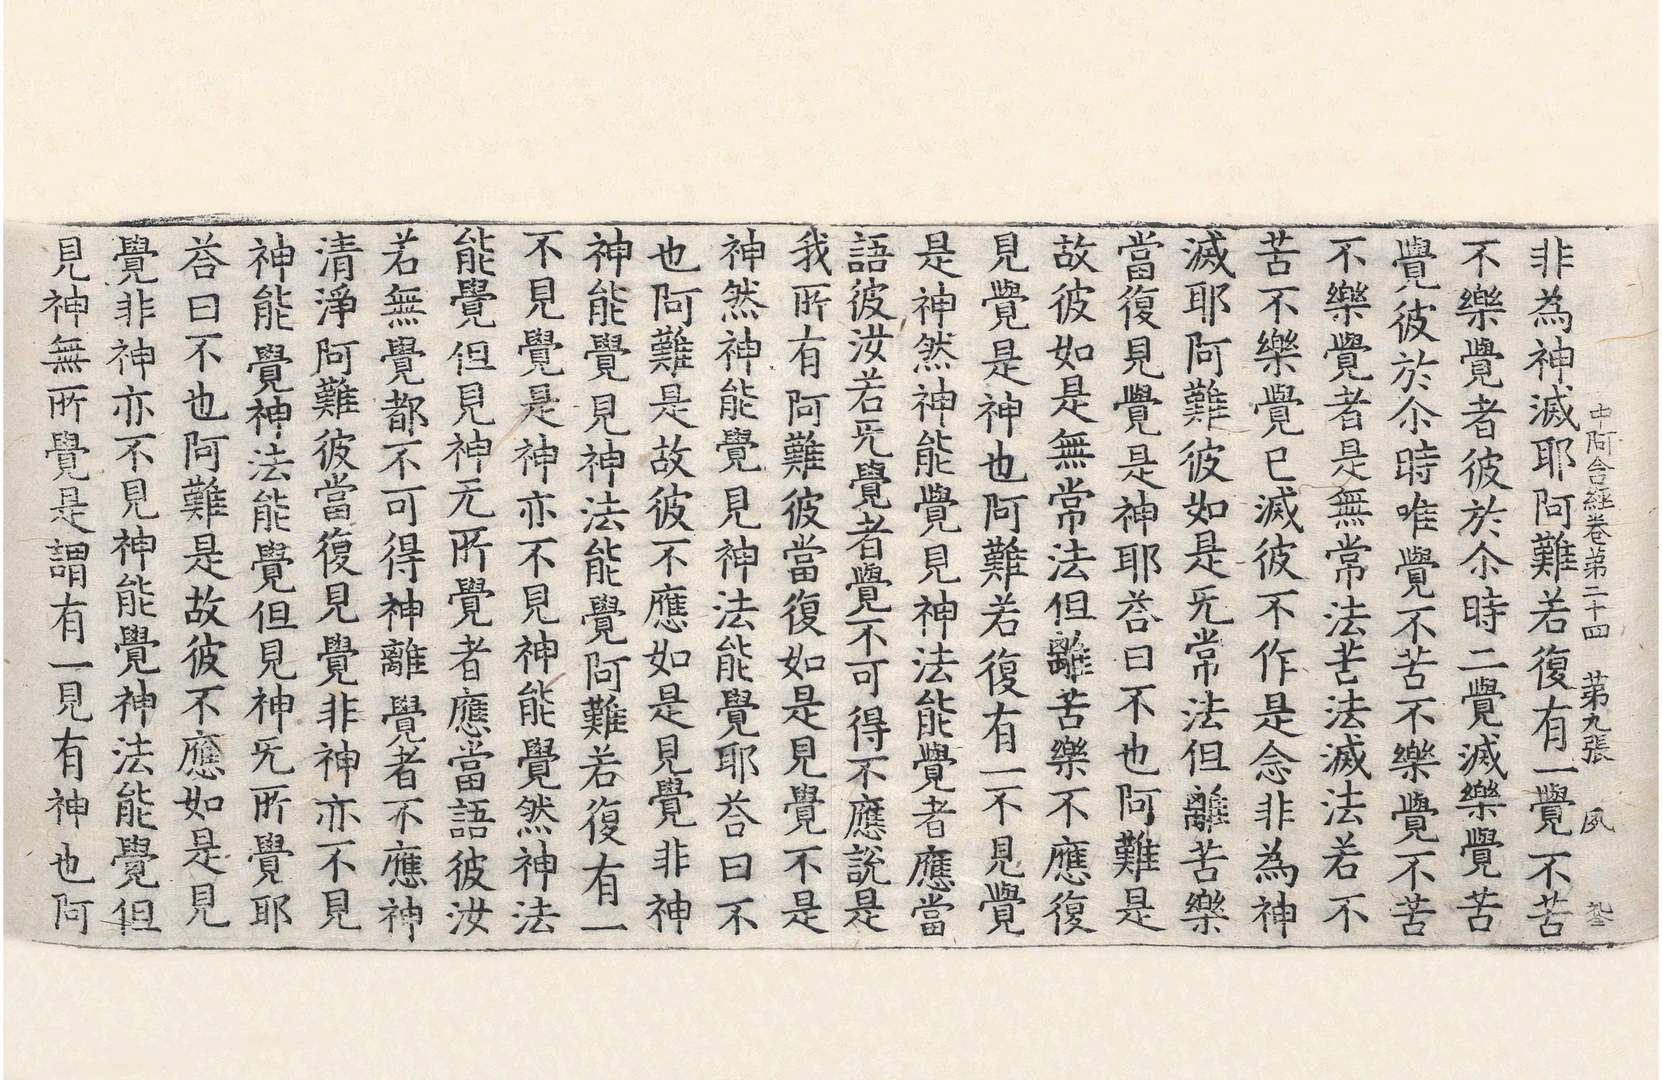 中阿含經卷第二十四　第九張　夙
非為神滅耶阿難若復有一覺不苦
不樂覺者彼於尒時二覺滅樂覺苦
覺彼於尒時唯覺不苦不樂覺不苦
不樂覺者是無常法苦法滅法若不
苦不樂覺已滅彼不作是念非為神
滅耶阿難彼如是无常法但離苦樂
當復見覺是神耶荅曰不也阿難是
故彼如是無常法但離苦樂不應復
見覺是神也阿難若復有一不見覺
是神然神能覺見神法能覺者應當
語彼汝若无覺者覺不可得不應說是
我所有阿難彼當復如是見覺不是
神然神能覺見神法能覺耶荅曰不
也阿難是故彼不應如是見覺非神
神能覺見神法能覺阿難若復有一
不見覺是神亦不見神能覺然神法
能覺但見神无所覺者應當語彼汝
若無覺都不可得神離覺者不應神
清淨阿難彼當復見覺非神亦不見
神能覺神法能覺但見神无所覺耶
荅曰不也阿難是故彼不應如是見
覺非神亦不見神能覺神法能覺但
見神無所覺是謂有一見有神也阿